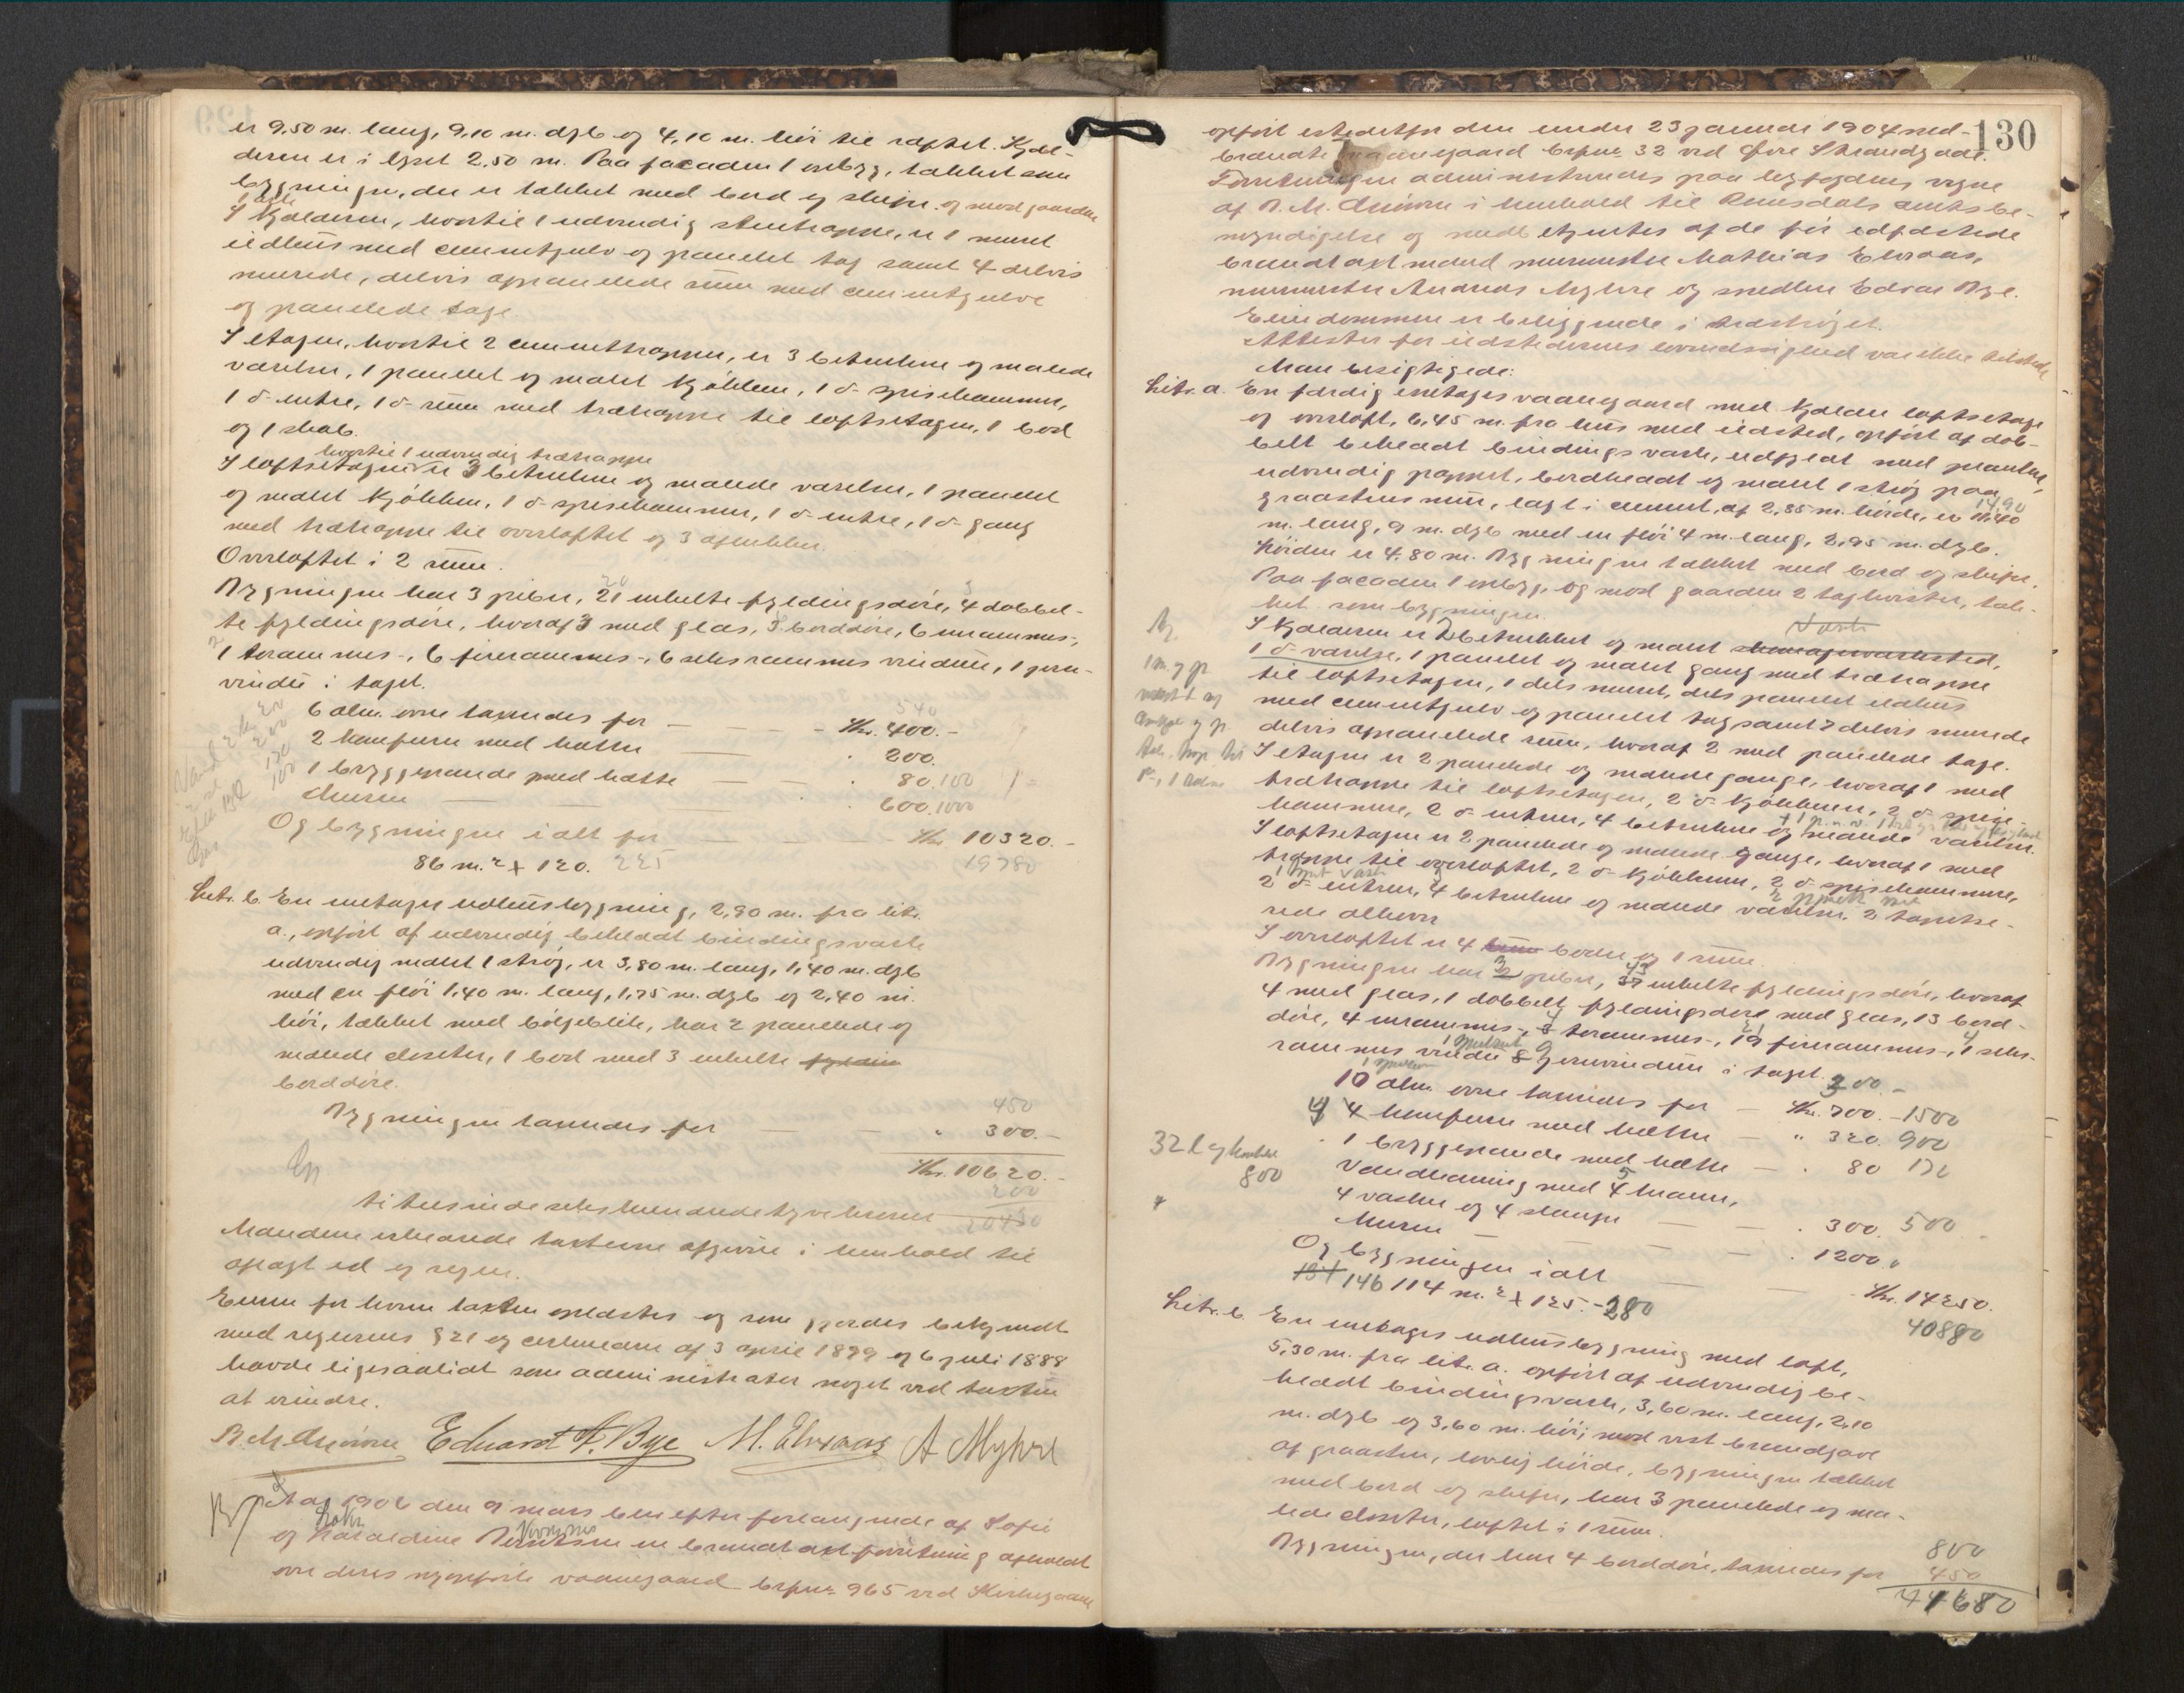 er 9,50 m. lang, 9,10 m. dyb og 4,10 m. høi til raftet. Kjæl-
deren er i lyset 2,50 m. Paa facaden 1 opbyg, tækket som
bygningen, der er tækket med bord og skifer. og mod gaarden
1 ark
I kjælderen, hvortil 1 udvendig stentrappe, er 1 muret
ildhus med cementgulv og panelet tag samt 4 delvis
murede, delvis afpanelede rum med cementgulve
og panelede tage.
I etagen, hvortil 2 cementtrapper, er 3 betrukne og malede
værelser, 1 panelet og malet kjøkken, 1 d- spisekammer,
1 d- entre, 1 d- rum med trætrappe til loftsetagen, 1 bod
og 1 skab.
hvortil 1 udvendig trætrappe
I loftsetagen er 3 betrukne og malede værelser, 1 panelet
og malet kjøkken, 1 d- spisekammer, 1 d- entre, 1 d- gang
med trætrappe til overloftet og 3 aflukker.
Overloftet i 2 rum.
Bygningen har 3 piber, 21 enkelte fyldingsdøre, 4 dobbel-
te fyldingsdøre, hvoraf 3 med glas, 3 borddøre, 6 enrammes-,
1 torammes-, 6 firerammes-, 6 seksrammes vinduer, 1 jern-
vindu i taget.
6 alm. ovne taxeredes for — — — Kr. 400.-
540
2 komfurer med hætter — " 200.
1 bryggepande med hætte — — " 80. 100
Muren — — " 600. 1000
Og bygningen i alt for — — — Kr. 10320.-
86 m.² x 120. 225 19780
Litr. b. En enetages udhusbygning, 2,90 m. fra litr.
a., opført af udvendig beklædt bindingsværk
udvendig malet 1 strøg, er 3,80 m. lang, 1,40 m. dyb
med en fløi 1,40 m. lang, 1,75 m. dyb og 2,40 m.
høi, tækket med bølgeblik, har 2 panelede og
malede closetter, 1 bod med 3 enkelte
borddøre.
450
Bygningen taxeredes for — — " 300.-
Kr. 10620.-
200
ti tusinde seks hundrede tyve kroner
Mændene erklærede taxterne afgivne i henhold til
aflagt ed og regler.
Eieren for hvem taxten oplæstes og som gjordes bekjendt
med reglernes § 21 og cirkulære af 3 april 1899 og 6 juli 1888
havde ligesaalidt som administrator noget ved taxten
at erindre.
Eduard F. Bye M. Elvsaas A Myhre
Aar 1906 den 9 mars blev efter forlangende af Sofie
og Haraldine Berntsen en brandtaxtforretning afholdt
over deres nyopførte vaaningsgaard brfnr. 965 ved Kirkegaden
130
opført istedetfor den under 23 januar 1904 ned-
brændte vaaningsgaard brfnr. 32 ved Øvre Strandgade.
Forretningen administreredes paa lensfogdens vegne
af i henhold til Romsdals amts be-
myndigelse og medbetjentes af de før edfæstede
brandtaxtmænd murmester Mathias Elvsaas,
murmester Andreas Myhre og snedker Edvar Bye.
Eiendommen er beliggende i træstrøget.
Attester for ildstedernes brandsikkerhed var ikke tilstede
Man besigtigede:
Litr. a. En færdig enetages vaaningsgaard med kjælder loftsetage
og overloft, 6,45 m. fra hus med ildsted, opført af dob-
belt beklædt bindingsværk, udfyldt med planker,
udvendig pappet, bordklædt og malet 1 strøg paa
graastens mur, lagt i cement, af 2,85 m. høide, er 14,90
m. lang, 9 m. dyb med en fløi 4 m. lang, 2,95 m. dyb.
Høiden er 4.80 m. Bygningen tækket med bord og skifer.
Paa facaden 1 opbyg, og mod gaarden 2 tagkvister, tæk-
ket som bygningen.
I kjælderen er 2 betrukket og malet
1 d- værelse, 1 panelet og malet gang med trætrappe
til loftsetagen, 1 dels muret, dels panelet ildhus
med cementgulv og panelet tag samt 7 delvis murede
delvis afpanelede rum, hvoraf 2 med panelede tage.
I etagen er 2 panelede og malede gange, hvoraf 1 med
trætrappe til loftsetagen, 2 d- kjøkkener, 2 d- spise-
kammere, 2 d- entreer, 4 betrukne og malede værelser.
I loftsetagen er 2 panelede og malede gange, hvoraf 1 med
trappe til overloftet, 2 d- kjøkkener, 2 d- spisekammere,
2 d- entreer, 4 betrukne og malede værelser. 2 tapetse-
rede alkover
I overloftet er 4 boder og 1 rum.
Bygningen har 3 piber, 37 43 enkelte fyldingsdøre, hvoraf
4 med glas, 1 dobbelt fyldingsdør med glas, 13 bord-
døre, 4 enrammes-, torammes-, 19 firerammes-, 1 seks-
rammes vindu 8 jernvinduer i taget.
300.-
10 alm. ovne taxeredes for — Kr. 700.- 1500
4 komfurer med hætter — " 320. 900
1 bryggepande med hætte — " 80
Vandledning med 4 kraner,
4 vasker og 4 slanger — — " 300. 500
Muren — — — " 1200.
Og bygningen i alt — — Kr. 14250.
146 114 m.² x 125.- 280 40880
800
Litr. b. En enetages udhusbygning med loft,
5,30 m. fra litr. a. opført af udvendig be-
klædt bindingsværk, 3,60 m. lang, 2,10
m. dyb og 3,60 m. høi; mod vest brandgavl
af graasten, lovlig høide, bygningen tækket
med bord og skifer, har 3 panelede og ma-
lede closetter, loftet i 1 rum.
800
Bygningen, der har 4 borddøre, taxeredes for 450
41680